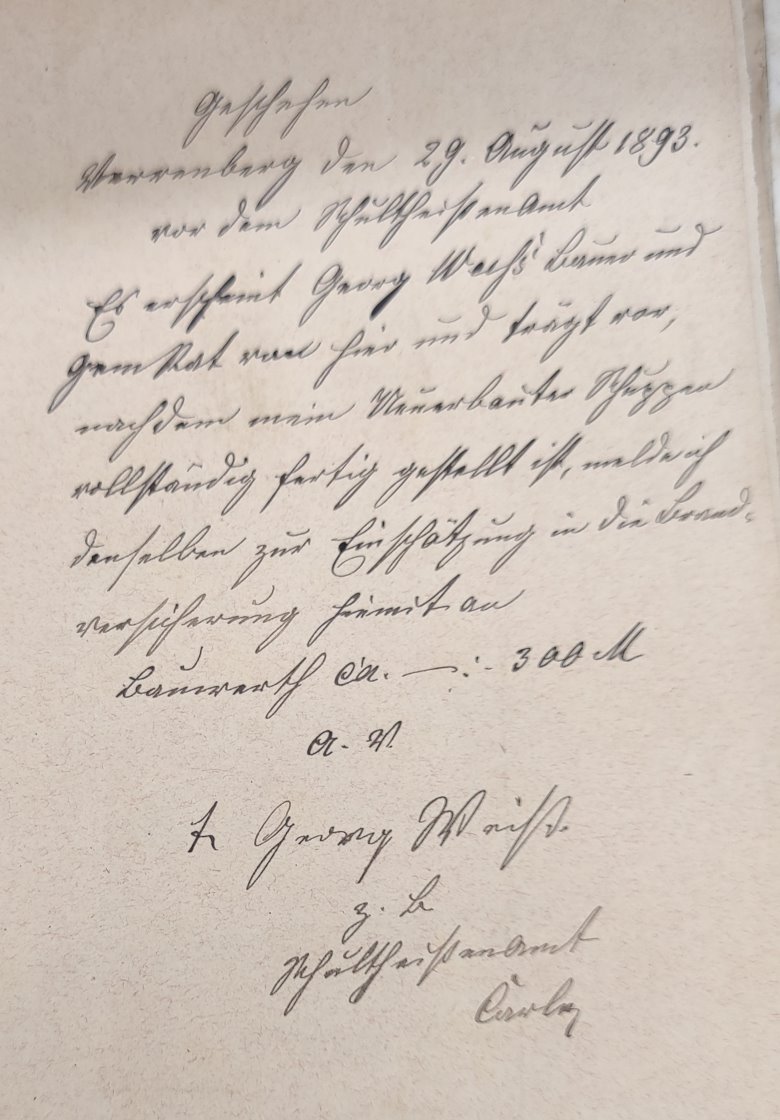 Geschehen
Verrenberg den 29. August 1893.
vor dem Schultheißenamt
Es erscheint Georg Bauer und
GemRat von hier und trägt vor,
nachdem mein Neuerbauter Schuppen
vollständig fertig gestellt ist, melde ich
denselben zur Einschätzung in die Brand-
versicherung hiemit an
Bauwerth ca. —:- 300 M
a. V.
t. Georg Weiß.
z. B
Schultheißenamt
Carle